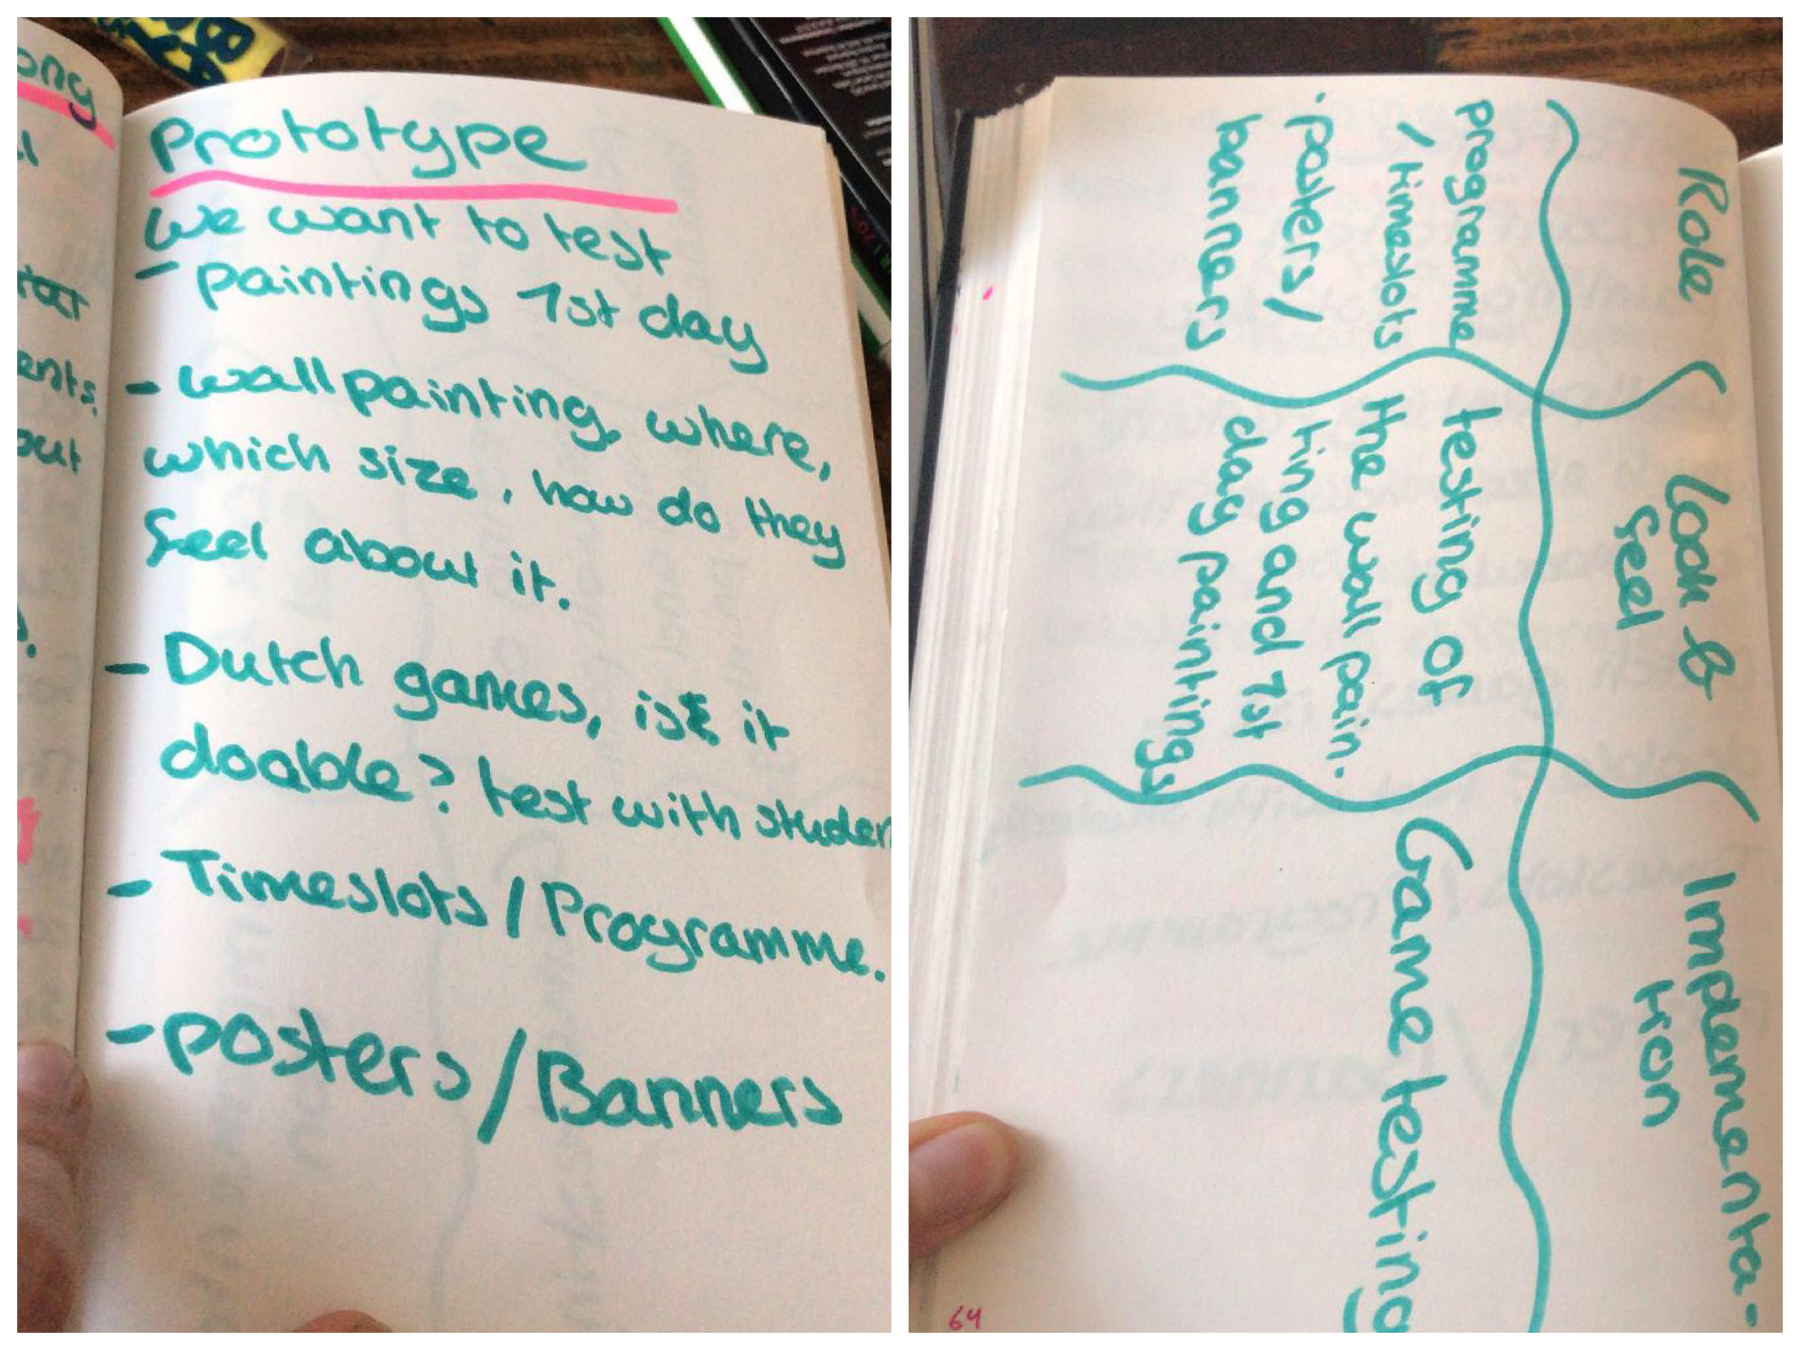 Prototype
We want to test
- paintings 1st day
- wallpainting, where,
which size, how do they
feel about it.
- Dutch games, is it
doable? test with studen
- Timeslots / Programme.
- posters / Banners
ong
ents,
out
Role
programme
/ timeslots
· posters /
banners
Look &
feel
testing of
the wall pain-
ting and 1st
day paintings
Implementa-
tion
Game testing
64